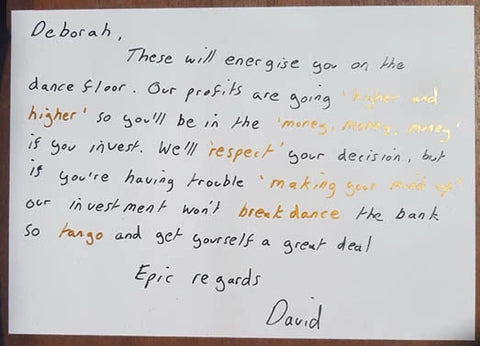 Deborah,
These will energise you on the
dance floor. Our profits are going 'higher and
higher' so you'll be in the 'money, money, money'
if you invest. We'll 'respect' your decision, but
if you're having trouble 'making your mind up'
our investment won't breakdance the bank
so tango and get yourself a great deal
Epic regards
David